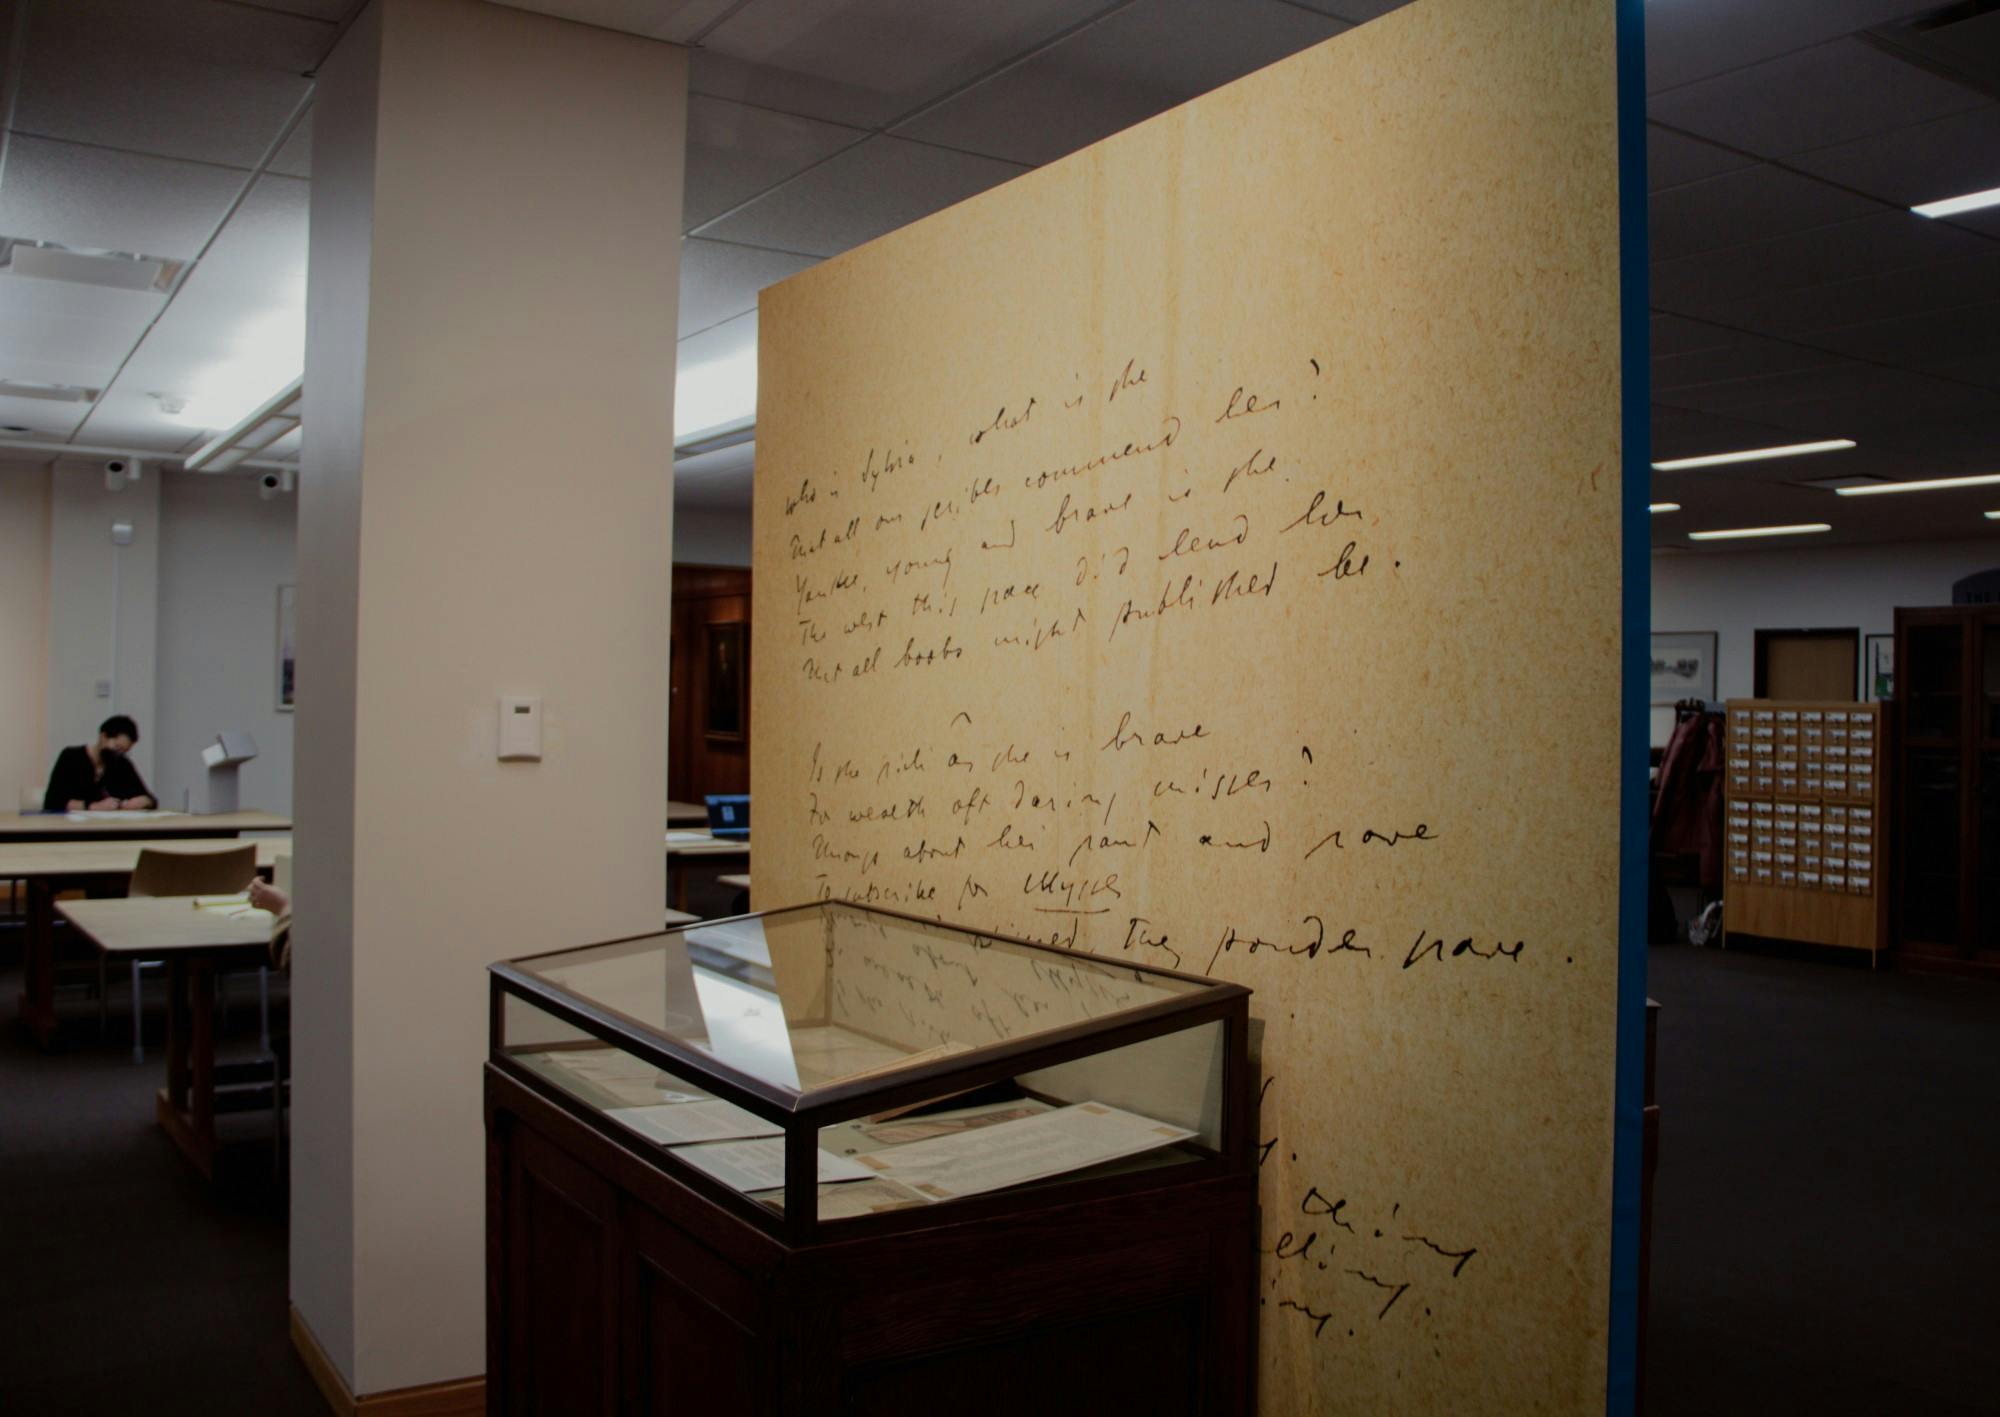 who is Sylvia, what is she
That all our scribes commend her?
Yankee, young and brave is she
The west this pace did lend her
That all books might published be.
Is she rich as she is brave
For wealth oft daring misses?
Throngs about her rant and rave
To subscribe for Ulysses
signed, they ponder grave.
y.
thing
elling.
ing.